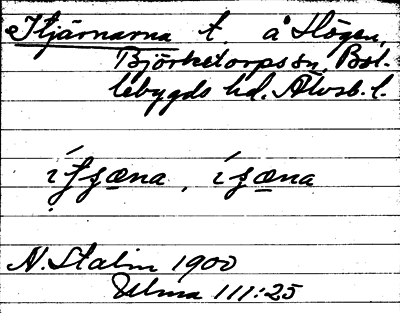 Stjärnarna t. å Högen,
Björketorps sn, Bol-
lebygds hd. Älvsb. l.
N. Stalin 1900
Ulma 111:25